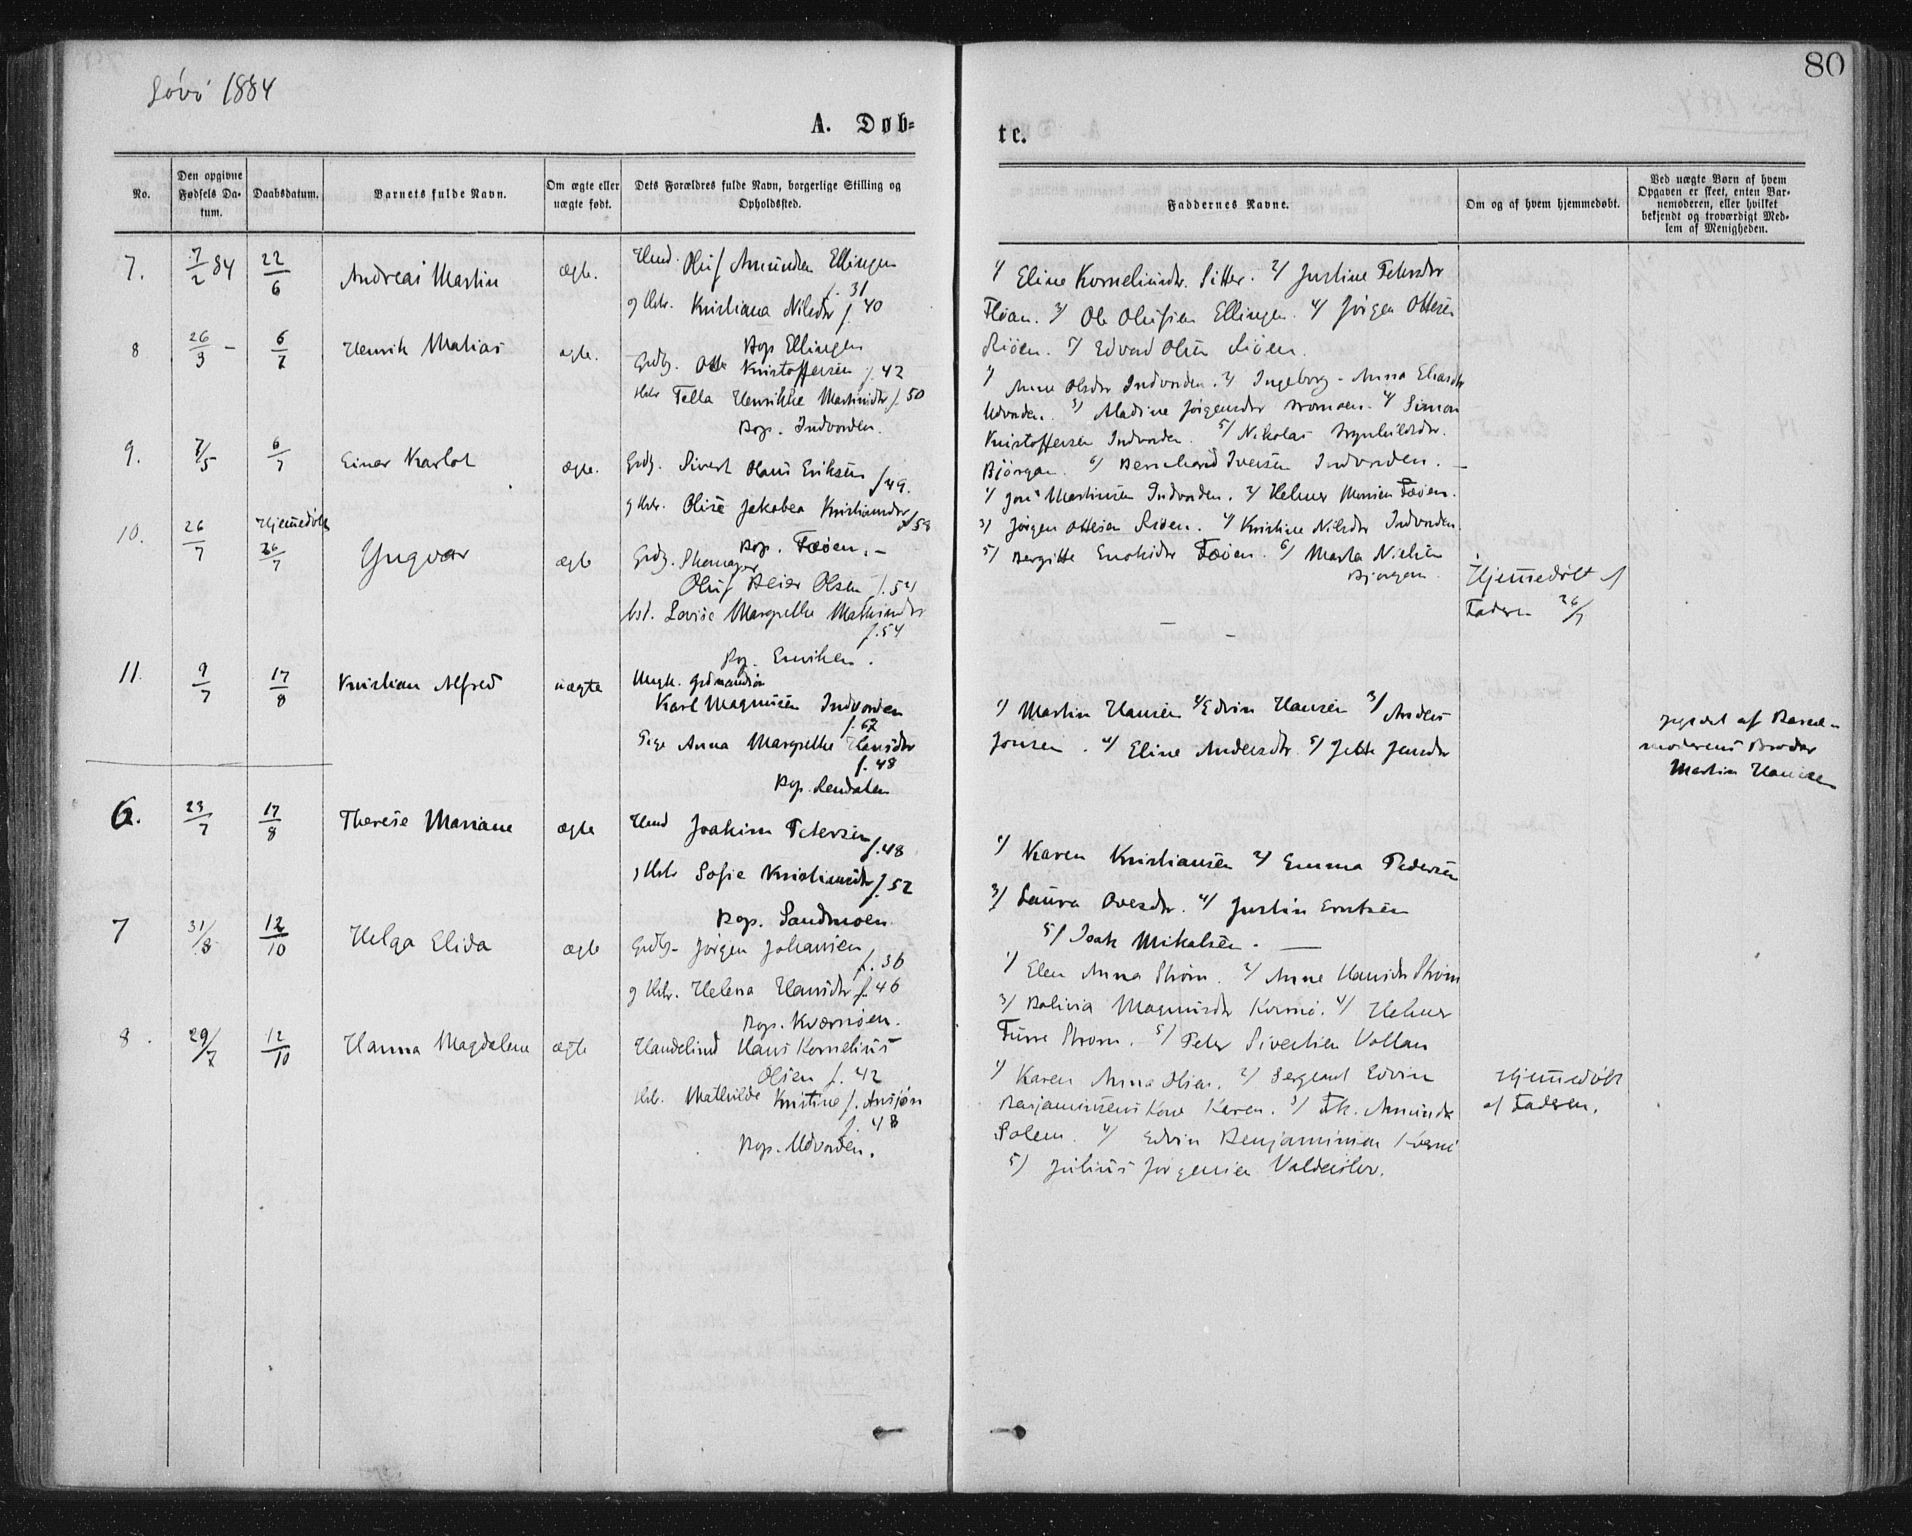 Løvö 1884
80
A. Døb=
te.
No.
Den opgivne Fødsels Da-tum.
Daabsdatum.
Barnets fulde Navn.
Om ægte eller uægte født.
Dets Forældres fulde Navn, borgerlige Stilling og Opholdssted.
Faddernes Navne.
Om og af hvem hjemmedøbt.
Ved uægte Børn af hvem Opgaven er skeet, enten Bar-nemoderen, eller hvilket bekjendt og troværdigt Med-lem af Menigheden.
7.
7/2 84
22/6
Andreas Martin
ægte.
Hmd. Oluf Amundsen Ellingen
f. 31
g Hstr. Kristiana Nilsdtr f. 40
Bop Ellingen
1/ Eline Kornelinsdtr. Sitter. 2/ Justine Petersdtr
Fløan. 3/ Ole Olufsen Ellingen. 4/ Jörgen Ottesen
Riöen. 5/ Edvard Olsen Riöen.
8
26/3 -
6/7
Henrik Matias
ægte.
Grdbg. Otto Kristoffersen f. 42
Hstr Tella Henrikke Martinsdtr f. 50
Bop. Indvorden.
1/ Anne Olsdtr Indvorden. 2/ Ingeborg-Anna Eliasdtr
Udvorden. 3/ Aladine Jörgensdtr Bromsen. 4/ Simon
Kristoffersen Indvorden. 5/ Nikolas
Björgan. 6/ Bernhard Iversen Indvorden. -
9.
7/5
6/7
Einar Karlot
ægte.
Grdg. Sivert Olaus Eriksen
f 49.
g Hstr. Olise Jakobea Kristiansdtr
f 58
Bop. Fæöen. -
1/ Jon Martinsen Indvorden. 2/ Helmer Monsen Fæöen.
3/ Jörgen Ottesen Riöen. 4/ Kristine Nilsdtr Indvorden
5/ Bergitte Enoksdtr Fæöen. 6/ Marta Nielsen
Björgan.
10.
26/7
Hjemmedøbt
26/7
Yngvar
ægte
Grdg. Skomager
Oluf Beier Olsen f. 54
Hst. Lovise Margrethe Mathiasdtr
f. 54
Bop. Enviken.
Hjemmedöbt af
Faderen 26/7
11.
9/7
17/8
Kristian Alfred
uægte
Ungk. Grdmandsön
Karl Magnussen Indvorden
f. 67
Pige Anna Margrethe Hansdtr
f. 48
Bop. Rendalen
1/ Martin Hansen 2/ Edvin Hansen 3/ Anders
Jonsen. 4/ Eline Andersdtr. 5/ Jette Jensdtr
Opgivet af Barne-
moderens Broder
Martin Hansen
6.
23/7
17/8
Therese Mariane
ægte
Hmd Joakim Petersen
f. 48
g Hstr Sofie Kristiansdtr f. 52
Bop. Sandmoen.
1/ Karen Kristiansen 2/ Emma Pedersen
3/ Laura Ovesdtr. 4/ Justin Erntsen
5/ Isak Mikalsen. -
7
31/8
12/10
Helga Elida
ægte
Grdbg. Jörgen Johansen
f. 36
g Hstr. Helena Hansdtr f. 46
Bop. Kværnöen.
1/ Elen Anna Ström. 2/ Anne Hansdtr Ström
3/ Bolivia Magnusdtr Kvernö. 4/ Helmer
Furre Strøm. 5/ Peter Sivertsen Vollan
8.
29/7
12/10
Hanna Magdalene
ægte
Handelsmd Hans Kornelius
Olsen f. 42
Hstr. Mathilde Kristine f. Ansjön
f. 48
Bop. Udvorden.
1/ Karen Anna Olsen. 2/ Sergeant Edvin
Benjaminsens Kone Karen. 3/ Frk.
Solem. 4/ Edvin Benjaminsen Kvernö
5/ Julius Jörgensen
Hjemmedöbt
af Faderen.